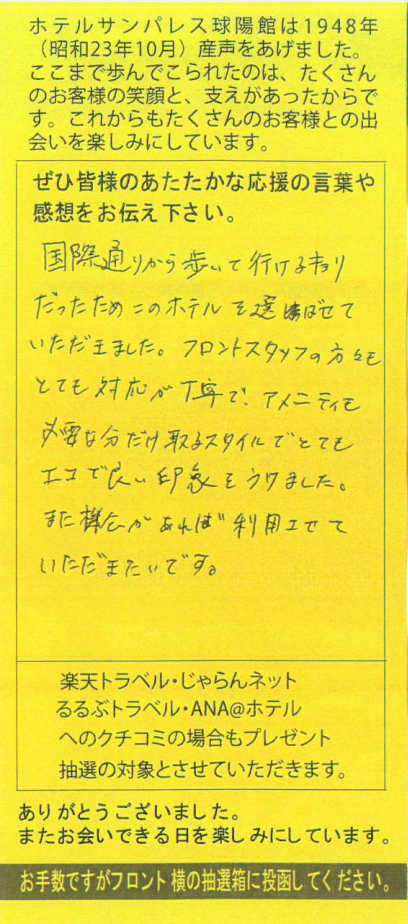 ホテルサンパレス球陽館は1948年
（昭和23年10月）産声をあげました。
ここまで歩んでこられたのは、たくさん
のお客様の笑顔と、支えがあったからで
す。これからもたくさんのお客様との出
会いを楽しみにしています。
ぜひ皆様のあたたかな応援の言葉や
感想をお伝え下さい。
国際通りから歩いて行けるキョリ
だったためこのホテルを選ばせて
いただきました。フロントスタッフの方々も
とても対応が丁寧で、アメニティも
必要な分だけ取るスタイルでとても
エコで良い印象をうけました。
また機会があれば利用させて
いただきたいです。
楽天トラベル・じゃらんネット
るるぶトラベル・ANA@ホテル
へのクチコミの場合もプレゼント
抽選の対象とさせていただきます。
ありがとうございました。
またお会いできる日を楽しみにしています。
お手数ですがフロント横の抽選箱に投函してください。